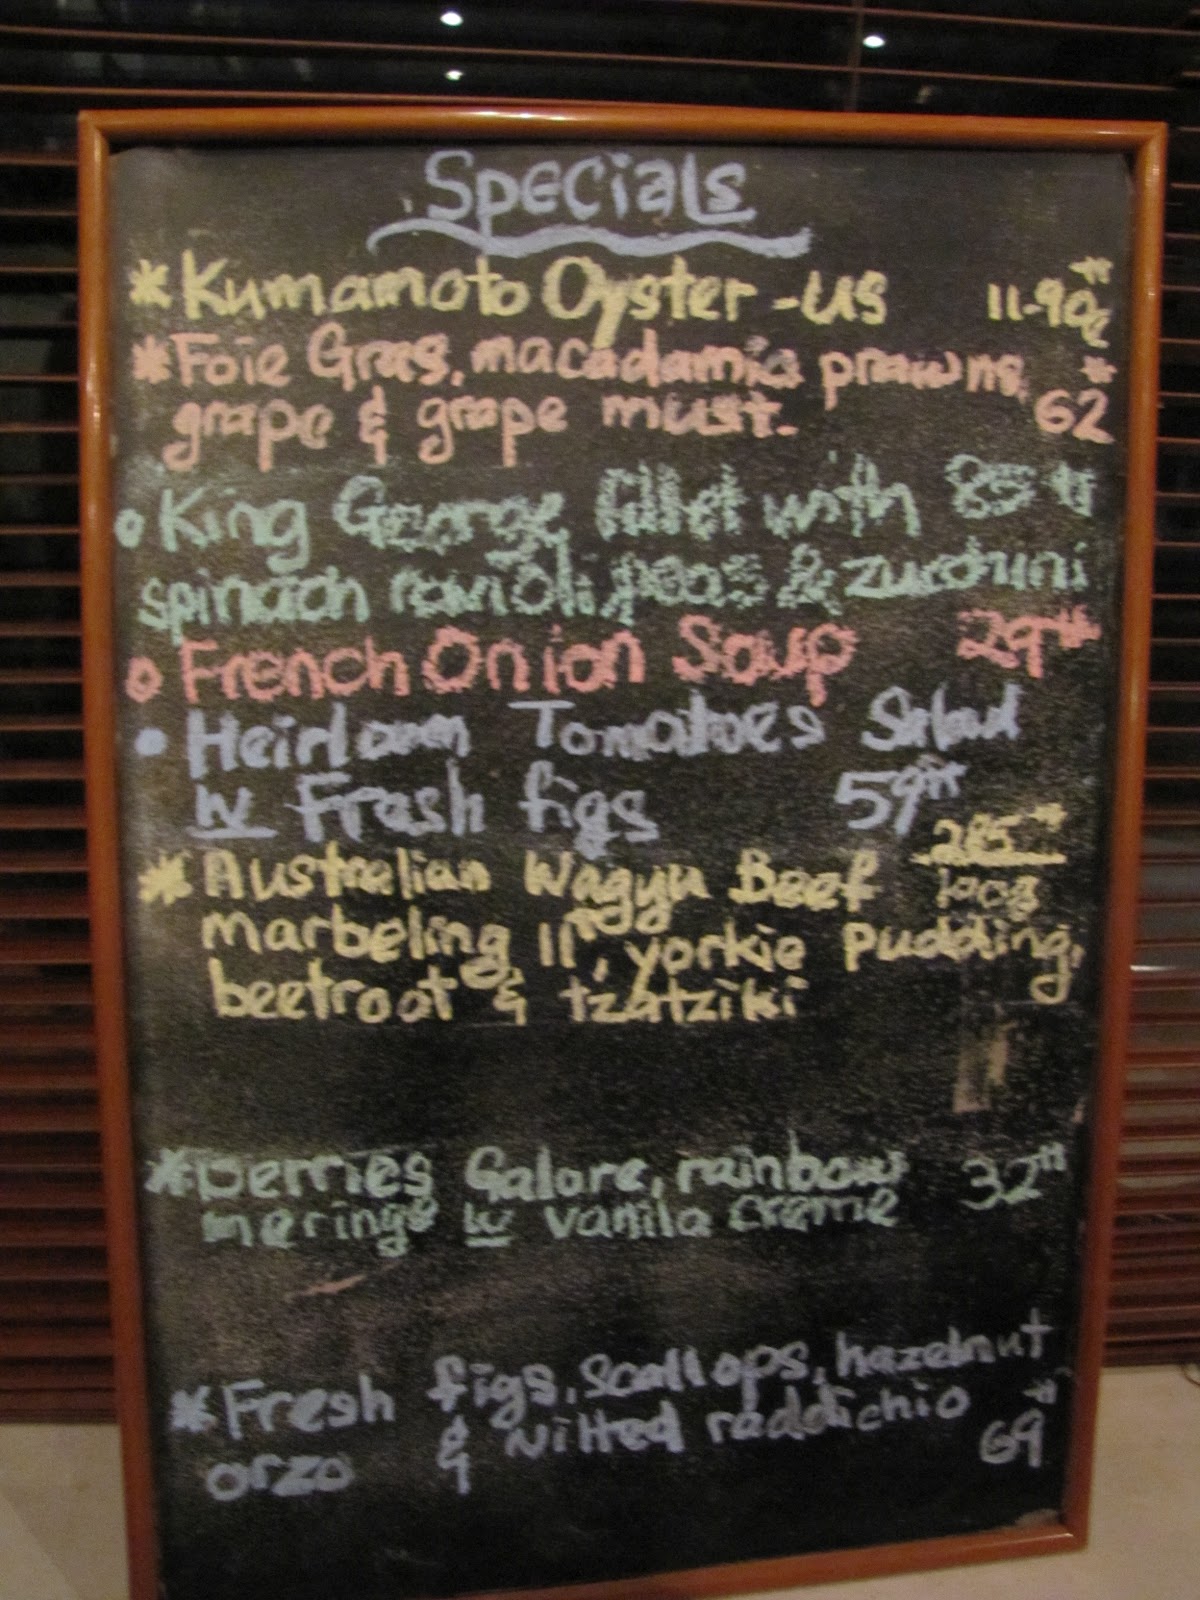 Specials
* Kumamoto Oyster - US 11-90
* Foie Gras, macadamia prawns,
grape & grape must. 62
King George fillet with 85
spinach ravioli, peas & zucchini
French Onion Soup 29
Heirloom Tomatoes Salad
w Fresh figs 59
* Australian Wagyu Beef 285
100g
marbeling 11, yorkie pudding,
beetroot & tzatziki
* Berries Galore, rainbow 32
meringe w vanila creme
* Fresh figs, scallops, hazelnut
orzo & wilted raddichio 69